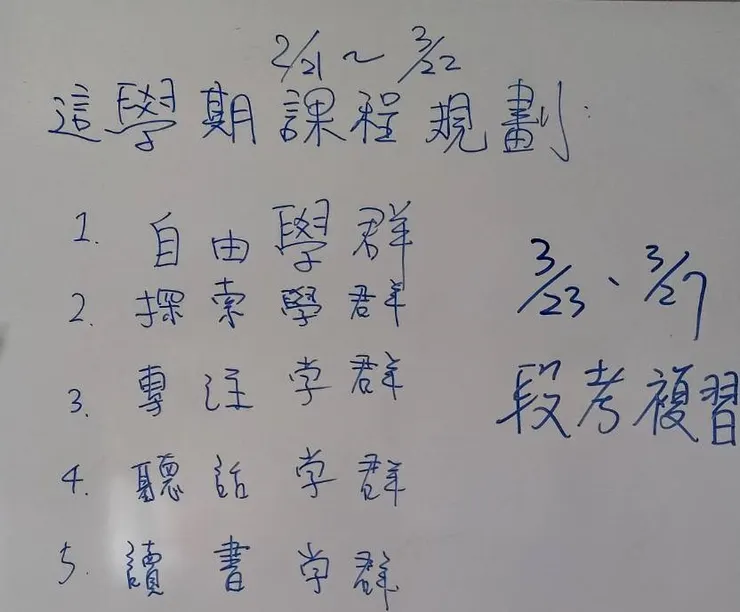 2/21 ~ 3/22
這學期課程規劃:
1. 自由學群
2. 探索學群
3. 專注学群
4. 聽話学群
5. 讀書学群
3/23、3/27
段考複習